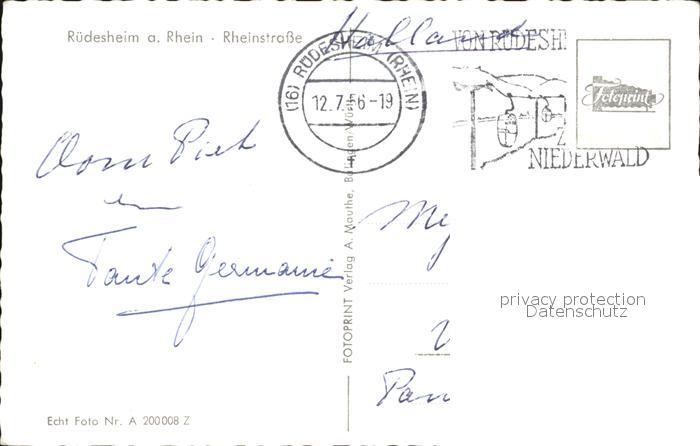 Rüdesheim a. Rhein · Rheinstraße
Holland
(16) RÜDESHEIM (RHEIN)
12.7.56-19
VON RÜDESH
NIEDERWALD
Fotoprint
Oom Piet
en
Tante Germaine
FOTOPRINT Verlag A. Mauthe, Balingen/Würt
My
Pan
privacy protection
Datenschutz
Echt Foto Nr. A 200008 Z